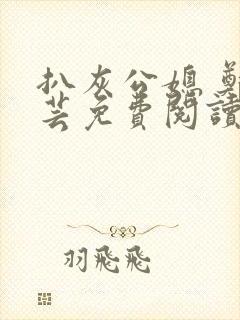 扒灰公媳
芸免費閱讀
羽飛飛